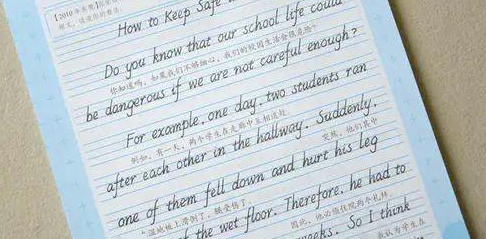 【2010年
How to Keep Safe
Do you know that our school life could
你知道吗，如果我们不够细心，我们的校园生活会很危险？
be dangerous if we are not careful enough?
For example, one day, two students ran
例如，有一天，两个学生在走廊中互相追赶
after each other in the hallway. Suddenly,
突然，他们其中
one of them fell down and hurt his leg
湿地板上滑倒了，腿受伤了
the wet floor. Therefore, he had to
因此，他必须住院两个礼拜
weeks. So I think
我认为学生在